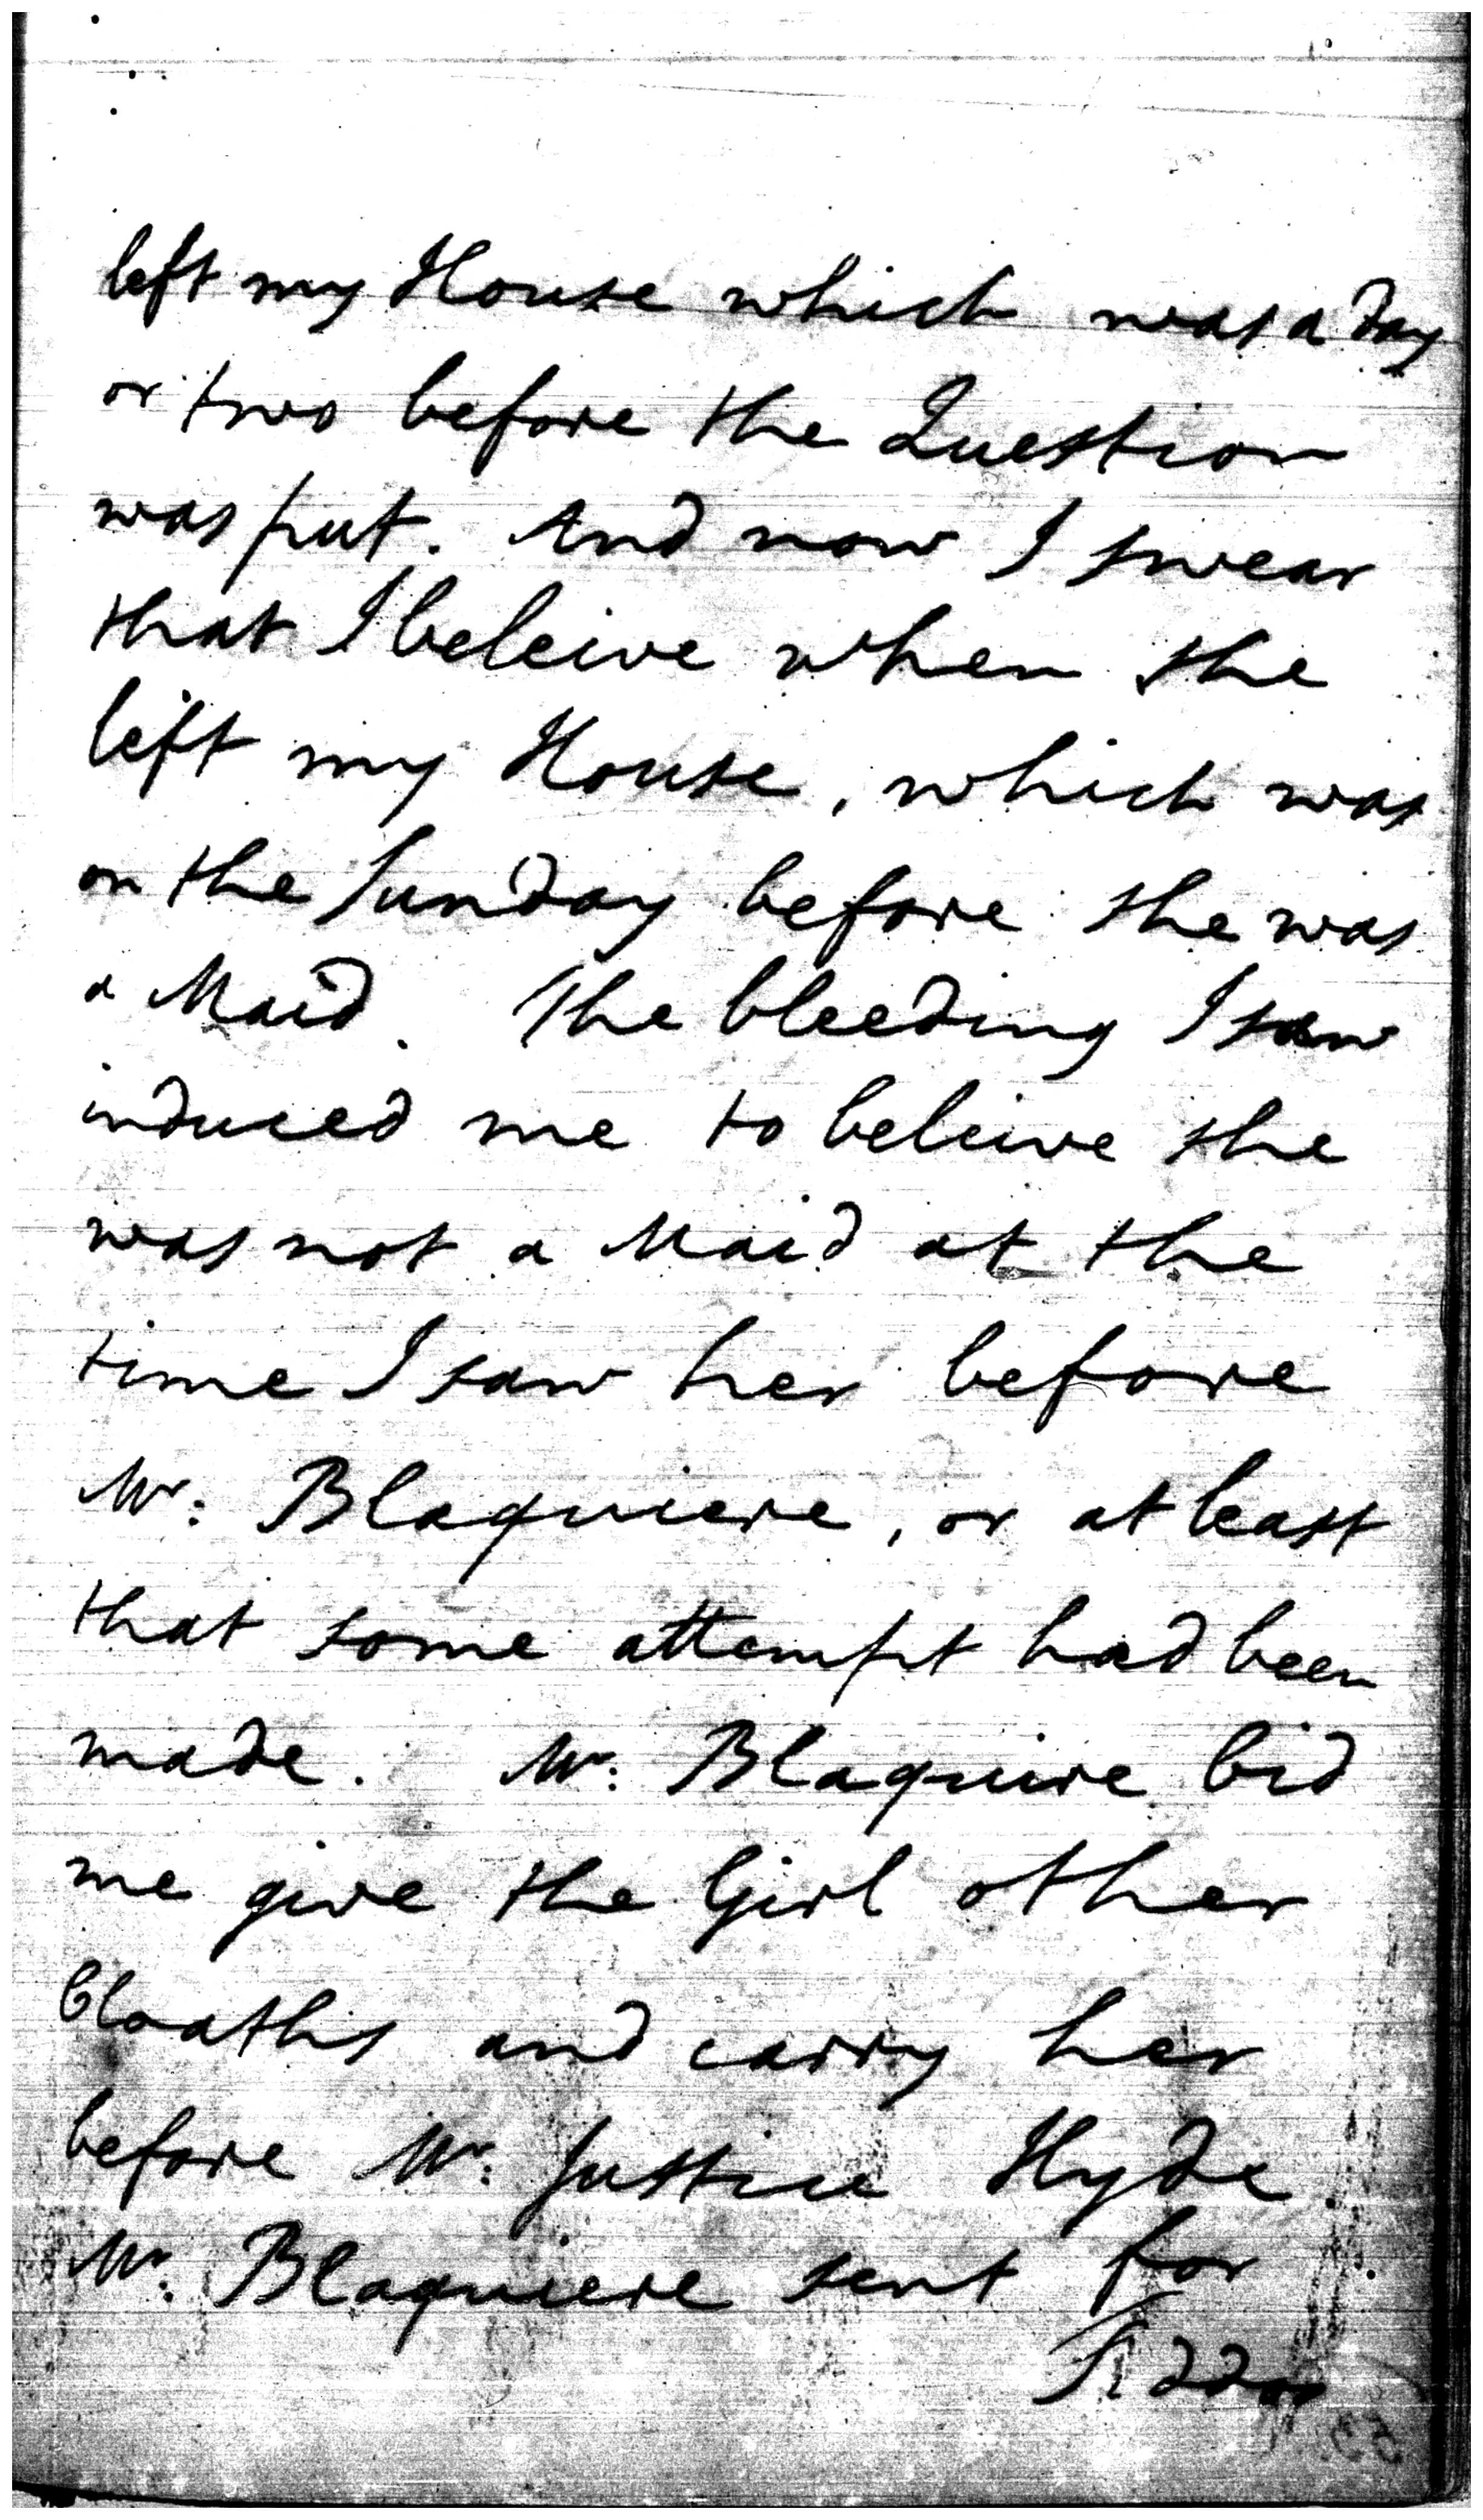 left my House which was a day
or two before the Question
was put. And now I swear
that I beleive when she
left my House, which was
on the Sunday before she was
a Maid. The bleeding I saw
induced me to beleive she
was not a Maid at the
time I saw her before
Mr: Blaquiere, or at least
that some attempt had been
made. Mr: Blaquire bid
me give the Girl other
Cloaths and carry her
before Mr: Justice Hyde.
Mr: Blaquiere sent for